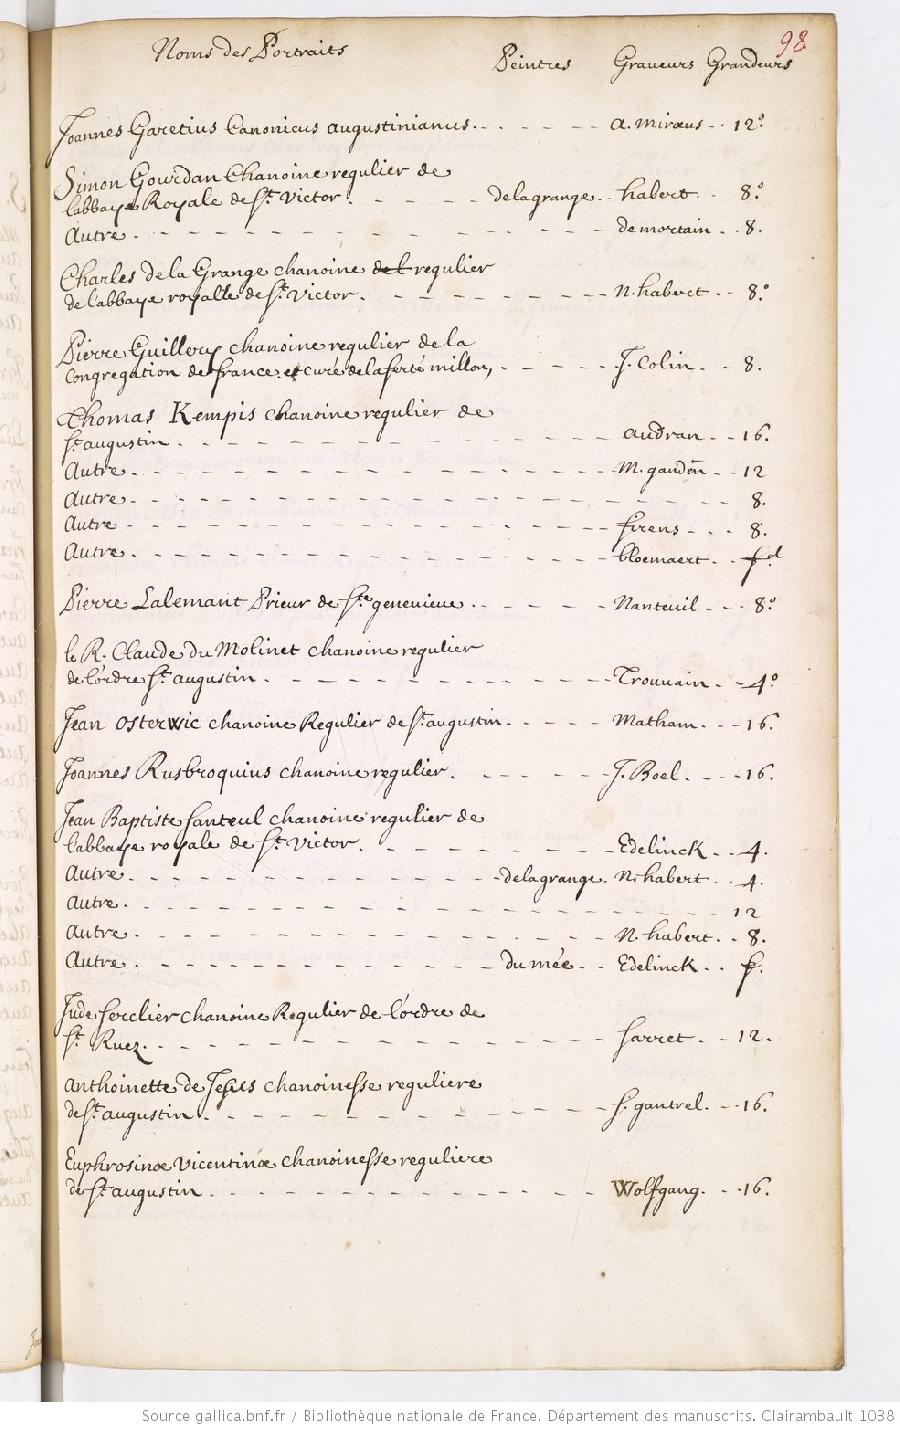 98
Noms des Portraits Peintres Graveurs Grandeurs
Joannes Garetius Canonicus augustinianus. . - - - - - a. miræus - . 12.º
Simon Gourdan Chanoine regulier de
l'abbaye Royale de St. Victor. - - - - delagrange. . habert . . 8.º
Autre. - - - - - - - - - - - demortain . . 8.
Charles de la Grange chanoine de l regulier
de l'abbaye royalle de St. Victor. - - - - - - - N. habert . . 8.º
Pierre Guillery chanoine regulier de la
congregation de france et curé de la ferté millon, - - - - J. Colin . . 8.
Thomas Kempis chanoine regulier de
St. augustin. - - - - - - - - - - - audran . . 16.
Autre. - - - - - - - - - - - - M. gauden . . 12
Autre. - - - - - - - - - - - - - - 8.
Autre - - - - - - - - - - - - firens - . . 8.
Autre. - - - - - - - - - - - - bloemaert . . fol.
Pierre Lalemant Prieur de Ste genevieve. . - - - - Nanteuil - . . 8.º
le R. Claude du Molinet chanoine regulier
de l'ordre St. augustin. - - - - - - - - - Trouvain . - 4º
Jean Osterwic chanoine Regulier de St. augustin. - - - - Matham . . . 16.
Joannes Rusbroquius chanoine regulier. - - - - - J. Boel . - - . 16.
Jean Baptiste Santeul chanoine regulier de
l'abbaye royale de St. Victor. - - - - - - - - Edelinck . . 4.
Autre. - - - - - - - - - - delagrange. N. habert . . 4.
Autre. - - - - - - - - - - - - - - 12
Autre. - - - - - - - - - - - - N. habert . . 8.
Autre. - - - - - - - - - - du mée . . Edelinck . . f.
Jude Serclier chanoine Regulier de l'ordre de
St. Ruez. - - - - - - - - - - - - Sarret . . 12.
anthoinette de Jesus chanoinesse reguliere
de St. augustin. - - - - - - - - - - - S. gantrel. . . 16.
Euphrosinæ Vicentinæ chanoinesse reguliere
de St. augustin. - - - - - - - - - - - Wolfgang. . . 16.
Source gallica.bnf.fr / Bibliothèque nationale de France. Département des manuscrits. Clairambault 1038